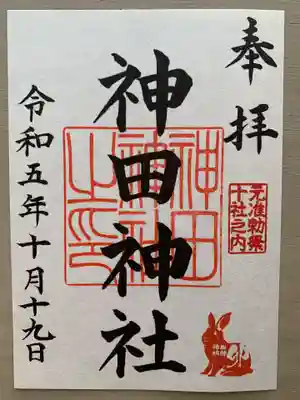 奉拝
元准勅祭
十社之内
神田神社
神田
神社
之印
令和五年十月十九日